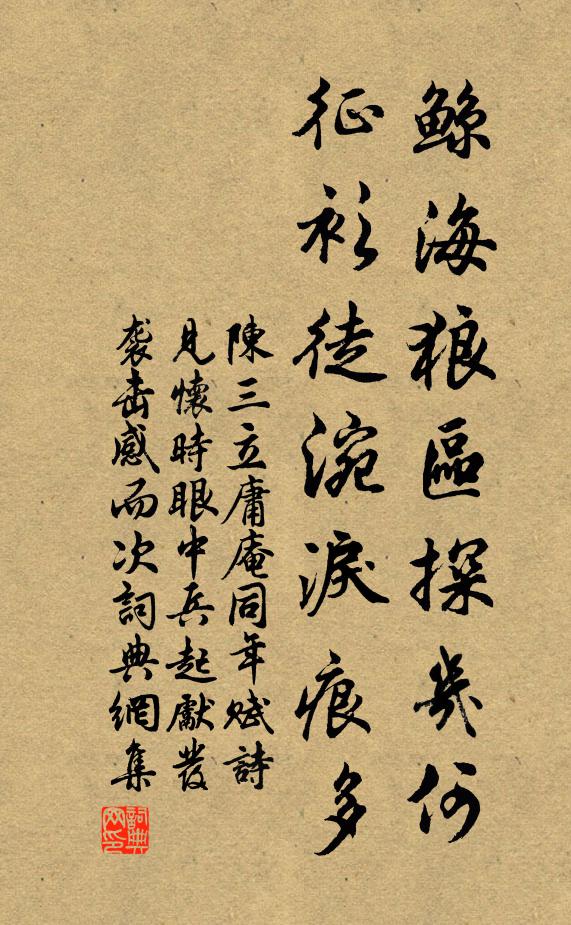 鯨海狼區探幾何
征衫徒涴淚痕多
陳三立庸庵同年賦詩
見懷時眼中兵起獻發
袭击感而次詞典網集
詞典
网印